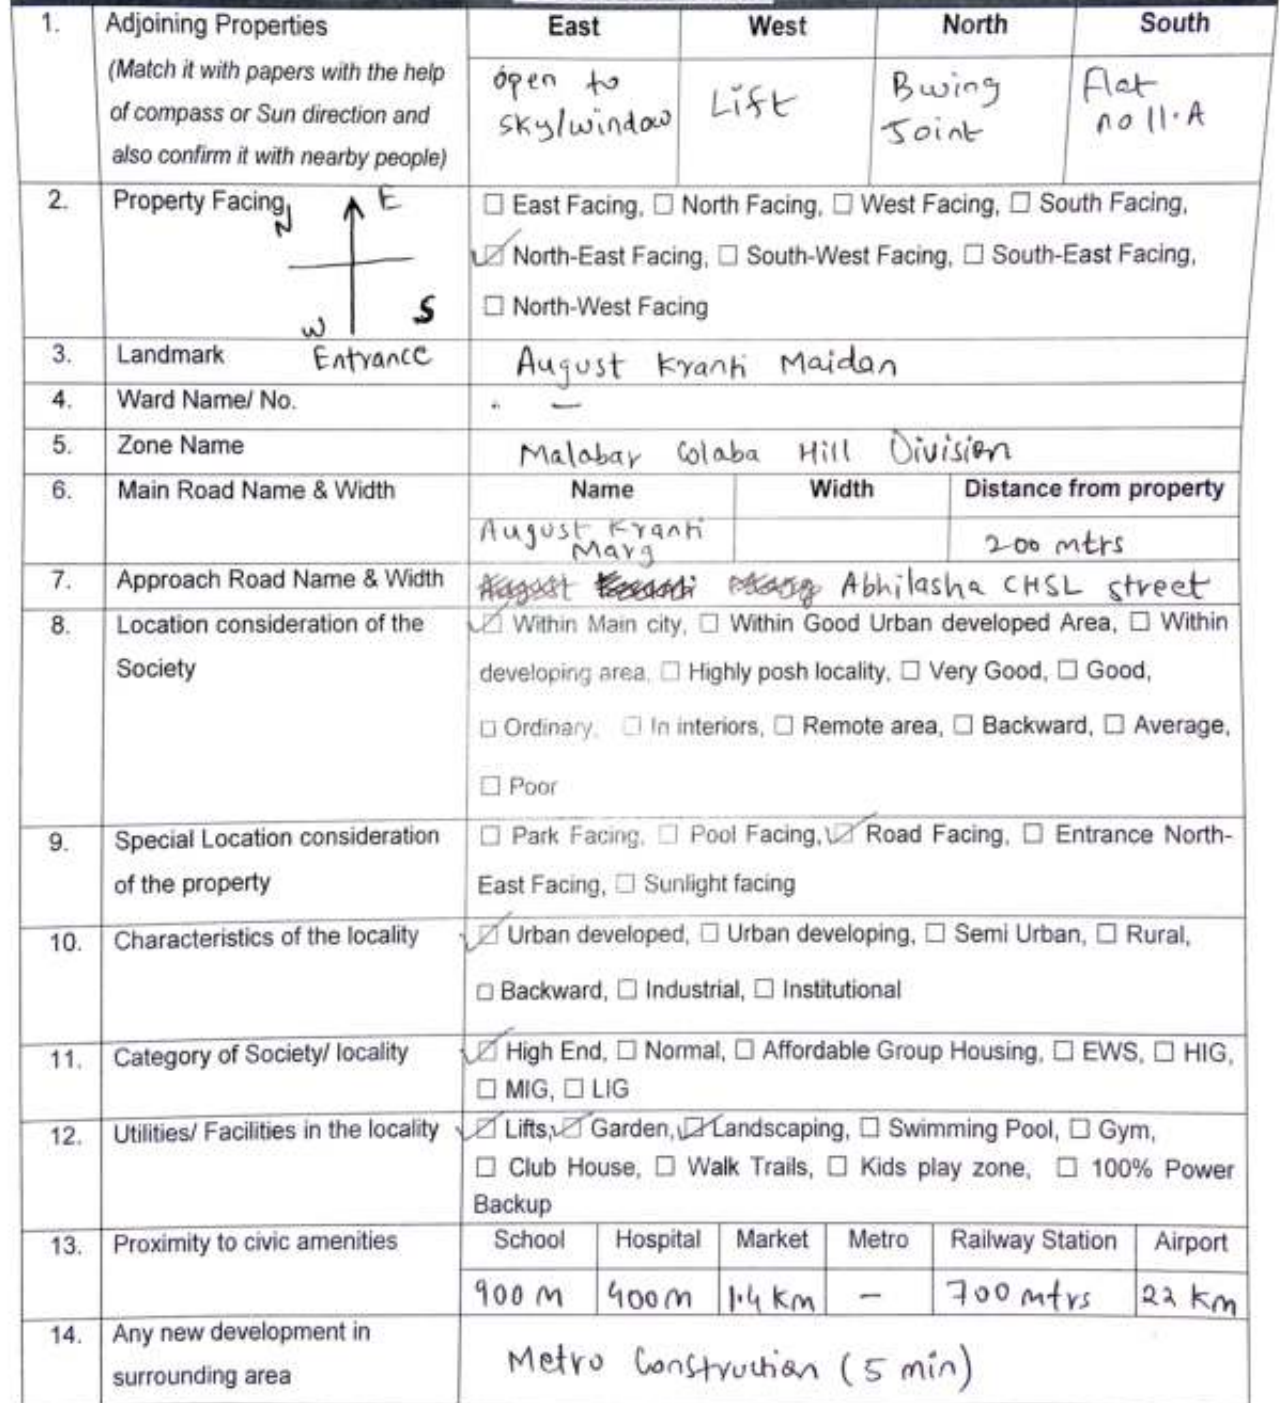 1. Adjoining Properties East West North South
(Match it with papers with the help
of compass or Sun direction and
also confirm it with nearby people)
open to
sky/window
Lift
B wing
Joint
Flat
no 11.A
2. Property Facing
N E
W S
☐ East Facing, ☐ North Facing, ☐ West Facing, ☐ South Facing,
☑ North-East Facing, ☐ South-West Facing, ☐ South-East Facing,
☐ North-West Facing
Entrance
3. Landmark August Kranti Maidan
4. Ward Name/ No. . –
5. Zone Name Malabar Colaba Hill Division
6. Main Road Name & Width Name Width Distance from property
August Kranti
Marg
200 mtrs
7. Approach Road Name & Width Abhilasha CHSL street
8. Location consideration of the
Society
☑ Within Main city, ☐ Within Good Urban developed Area, ☐ Within
developing area, ☐ Highly posh locality, ☐ Very Good, ☐ Good,
☐ Ordinary, ☐ In interiors, ☐ Remote area, ☐ Backward, ☐ Average,
☐ Poor
9. Special Location consideration
of the property
☐ Park Facing, ☐ Pool Facing, ☑ Road Facing, ☐ Entrance North-
East Facing, ☐ Sunlight facing
10. Characteristics of the locality
☑ Urban developed, ☐ Urban developing, ☐ Semi Urban, ☐ Rural,
☐ Backward, ☐ Industrial, ☐ Institutional
11. Category of Society/ locality
☑ High End, ☐ Normal, ☐ Affordable Group Housing, ☐ EWS, ☐ HIG,
☐ MIG, ☐ LIG
12. Utilities/ Facilities in the locality
☑ Lifts, ☑ Garden, ☑ Landscaping, ☐ Swimming Pool, ☐ Gym,
☐ Club House, ☐ Walk Trails, ☐ Kids play zone, ☐ 100% Power
Backup
13. Proximity to civic amenities School Hospital Market Metro Railway Station Airport
900 m 400 m 1.4 km – 700 mtrs 22 km
14. Any new development in
surrounding area
Metro Construction (5 min)